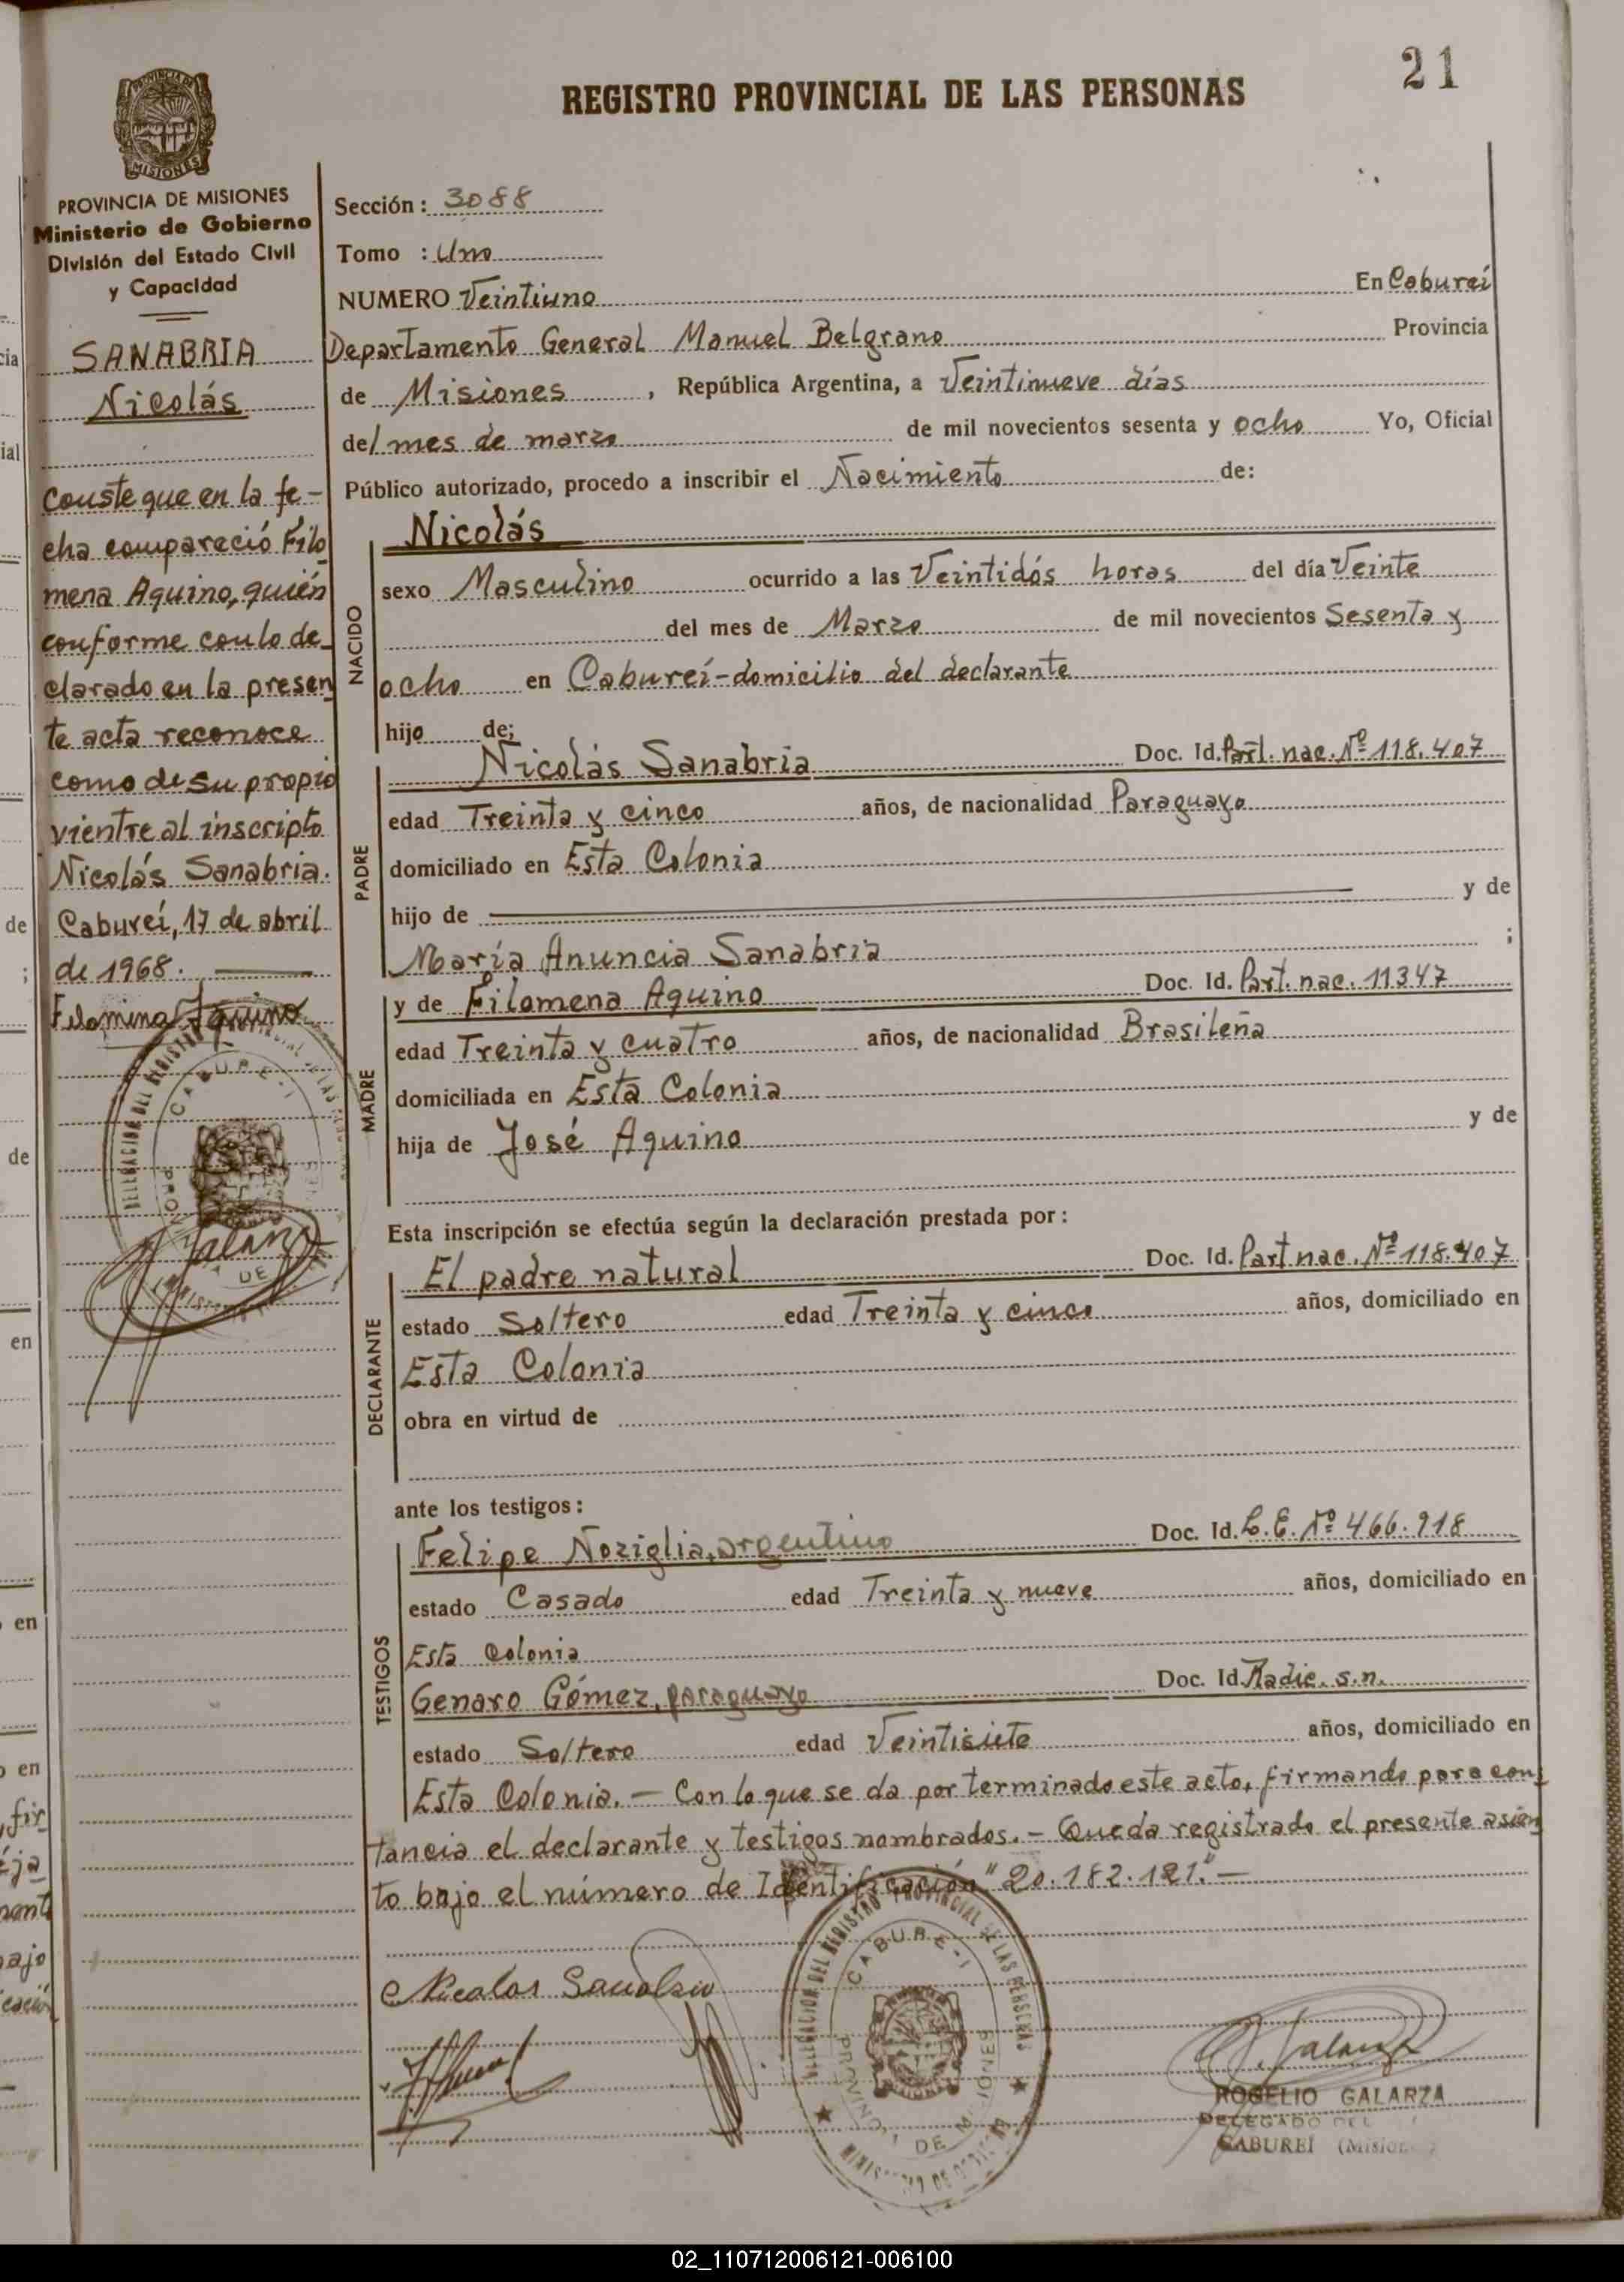 21
REGISTRO PROVINCIAL DE LAS PERSONAS
PROVINCIA DE
MISIONES
PROVINCIA DE MISIONES
Ministerio de Gobierno
División del Estado Civil
y Capacidad
SANABRIA
Nicolás
Conste que en la fe-
cha compareció Filo
mena Aquino, quién
conforme con lo de
clarado en la presen
te acta reconoce
como de su propio
vientre al inscripto
Nicolás Sanabria.
Caburei, 17 de abril
de 1968.
Filomina Aquino
Sección: 3088
Tomo : Uno
NUMERO Veintiuno En Caburei
Departamento General Manuel Belgrano Provincia
de Misiones, República Argentina, a Veintinueve días
del mes de marzo de mil novecientos sesenta y ocho Yo, Oficial
Público autorizado, procedo a inscribir el Nacimiento de:
NACIDO
Nicolás
sexo Masculino ocurrido a las Veintidós horas del día Veinte
del mes de Marzo de mil novecientos Sesenta y
ocho en Caburei-domicilio del declarante
hijo de;
PADRE
Nicolás Sanabria Doc. Id. Part. nac. Nº 118.407
edad Treinta y cinco años, de nacionalidad Paraguayo
domiciliado en Esta Colonia
hijo de y de
María Anuncia Sanabria ;
MADRE
y de Filomena Aquino Doc. Id. Part. nac. 11347
edad Treinta y cuatro años, de nacionalidad Brasileña
domiciliada en Esta Colonia
hija de José Aquino y de
Esta inscripción se efectúa según la declaración prestada por:
DECLARANTE
El padre natural Doc. Id. Part nac. Nº 118.407
estado Soltero edad Treinta y cinco años, domiciliado en
Esta Colonia
obra en virtud de
ante los testigos:
TESTIGOS
Felipe Noziglia, argentino Doc. Id. L. E. Nº 466.918
estado Casado edad Treinta y nueve años, domiciliado en
Esta Colonia
Genaro Gómez, paraguayo Doc. Id. Radic. s.n.
estado Soltero edad Veintisiete años, domiciliado en
Esta Colonia. - Con lo que se da por terminado este acto, firmando para cons
tancia el declarante y testigos nombrados. - Queda registrado el presente asien
to bajo el número de Identificación "20.182.121." -
DELEGACION DEL REGISTRO PROVINCIAL DE LAS PERSONAS
CABURE-I
PROVINCIA DE MISIONES
Nicolas Sanabria
R. Galarza
ROGELIO GALARZA
DELEGADO DEL
CABUREI (Misiones)
02_110712006121-006100